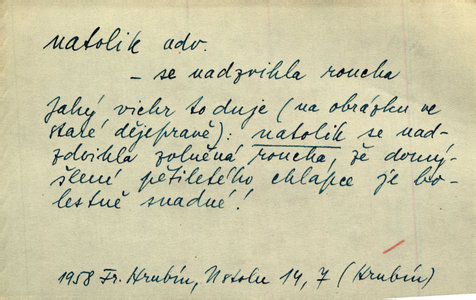 natolik adv.
– se nadzvihla roucha
Jaký vichr to duje (na obrázku ve
staré dějepravě): natolik se nad-
zdvihla zvlněná roucha, že domý-
šlení pětiletého chlapce je bo-
lestně snadné!
1958 Fr. Hrubín, U stolu 14, 7 (Hrubín)